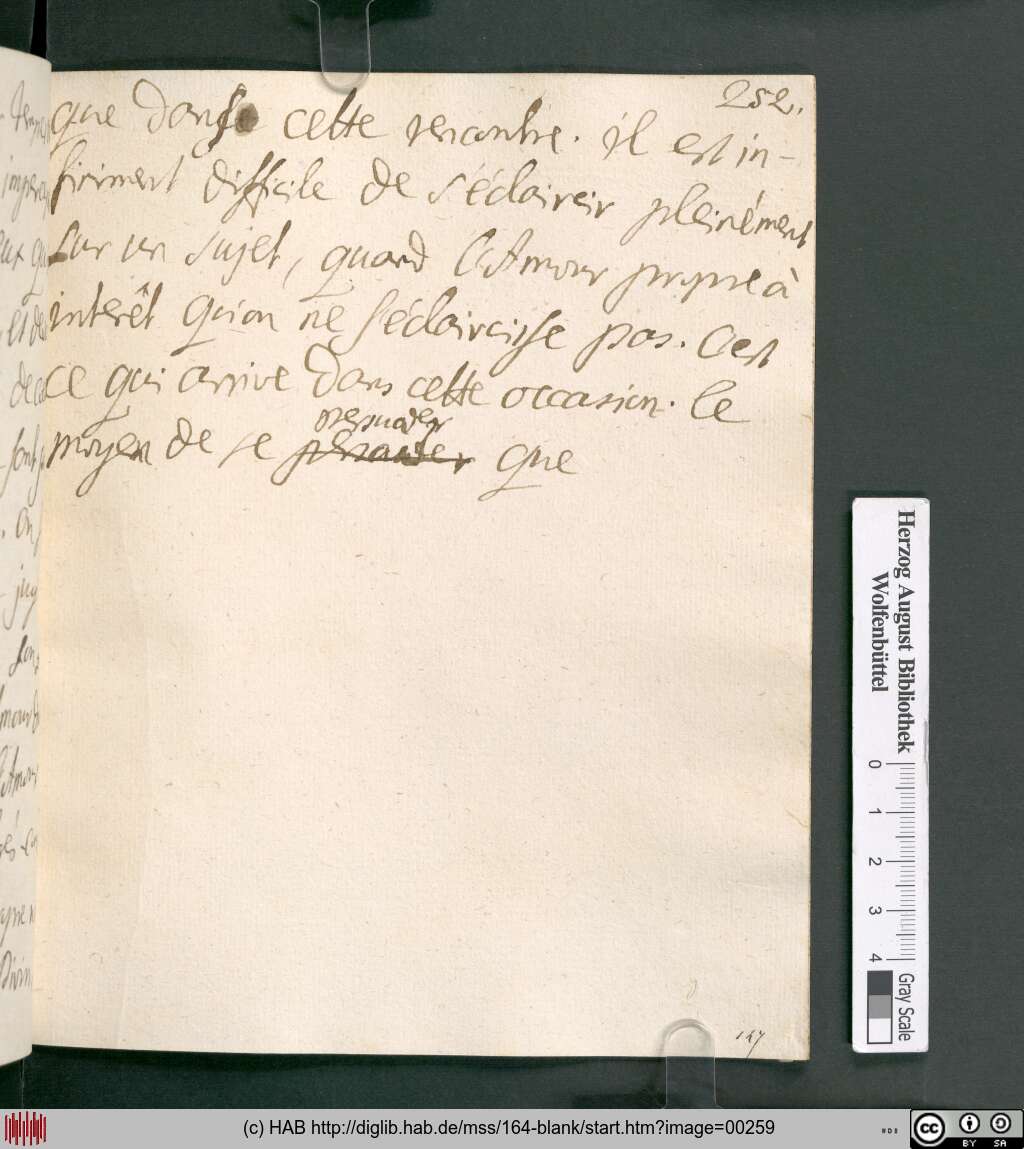 252.
que dans cette rencontre. il est in-
finiment difficile de s'éclaircir pleinément
sur un sujet, quand l'Amour propre à
interêt qu'on ne s'éclaircisse pas. C'est
ce qui arrive dans cette occasion. le
persuader
moyen de se persauder que
147
Herzog August Bibliothek
Wolfenbüttel
0 1 2 3 4
Gray Scale
(c) HAB http://diglib.hab.de/mss/164-blank/start.htm?image=00259
HAB
cc BY SA